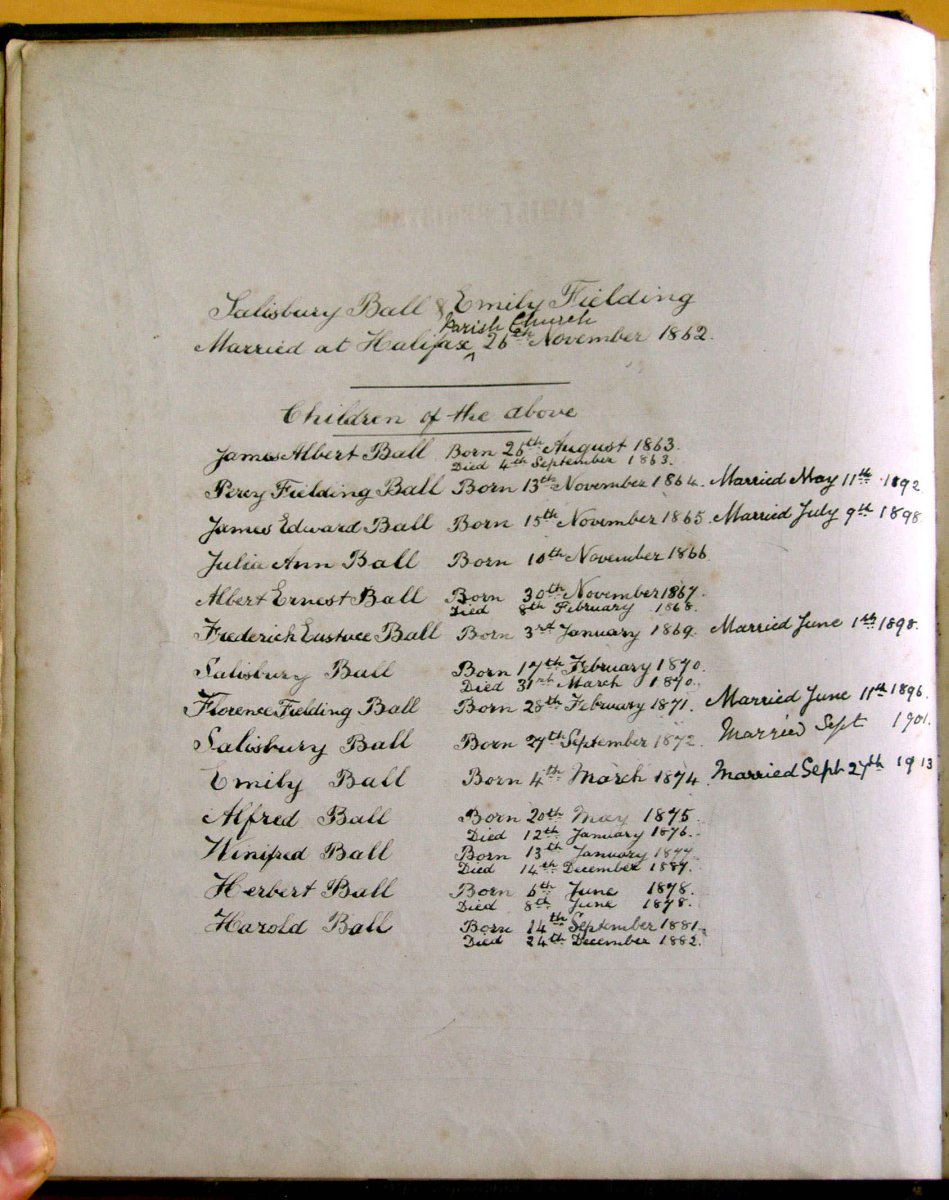 Salisbury Ball & Emily Fielding
Parish Church
Married at Halifax ^ 26th November 1862.
Children of the above
James Albert Ball Born 26th August 1863.
Died 4th September 1863.
Percy Fielding Ball Born 13th November 1864. Married May 11th 1892
James Edward Ball Born 15th November 1865. Married July 9th 1898.
Julia Ann Ball Born 10th November 1866
Albert Ernest Ball Born 30th November 1867.
Died 8th February 1868.
Frederick Eustace Ball Born 3rd January 1869. Married June 1st 1898.
Salisbury Ball Born 17th February 1870.
Died 31st March 1870.
Florence Fielding Ball Born 28th February 1871. Married June 11th 1896.
Salisbury Ball Born 27th September 1872. Married Sept 1901.
Emily Ball Born 4th March 1874. Married Sept 27th 1913
Alfred Ball Born 20th May 1875.
Died 12th January 1876.
Winifred Ball Born 13th January 1877.
Died 14th December 1887.
Herbert Ball Born 6th June 1878.
Died 8th June 1878.
Harold Ball Born 14th September 1881.
Died 24th December 1882.